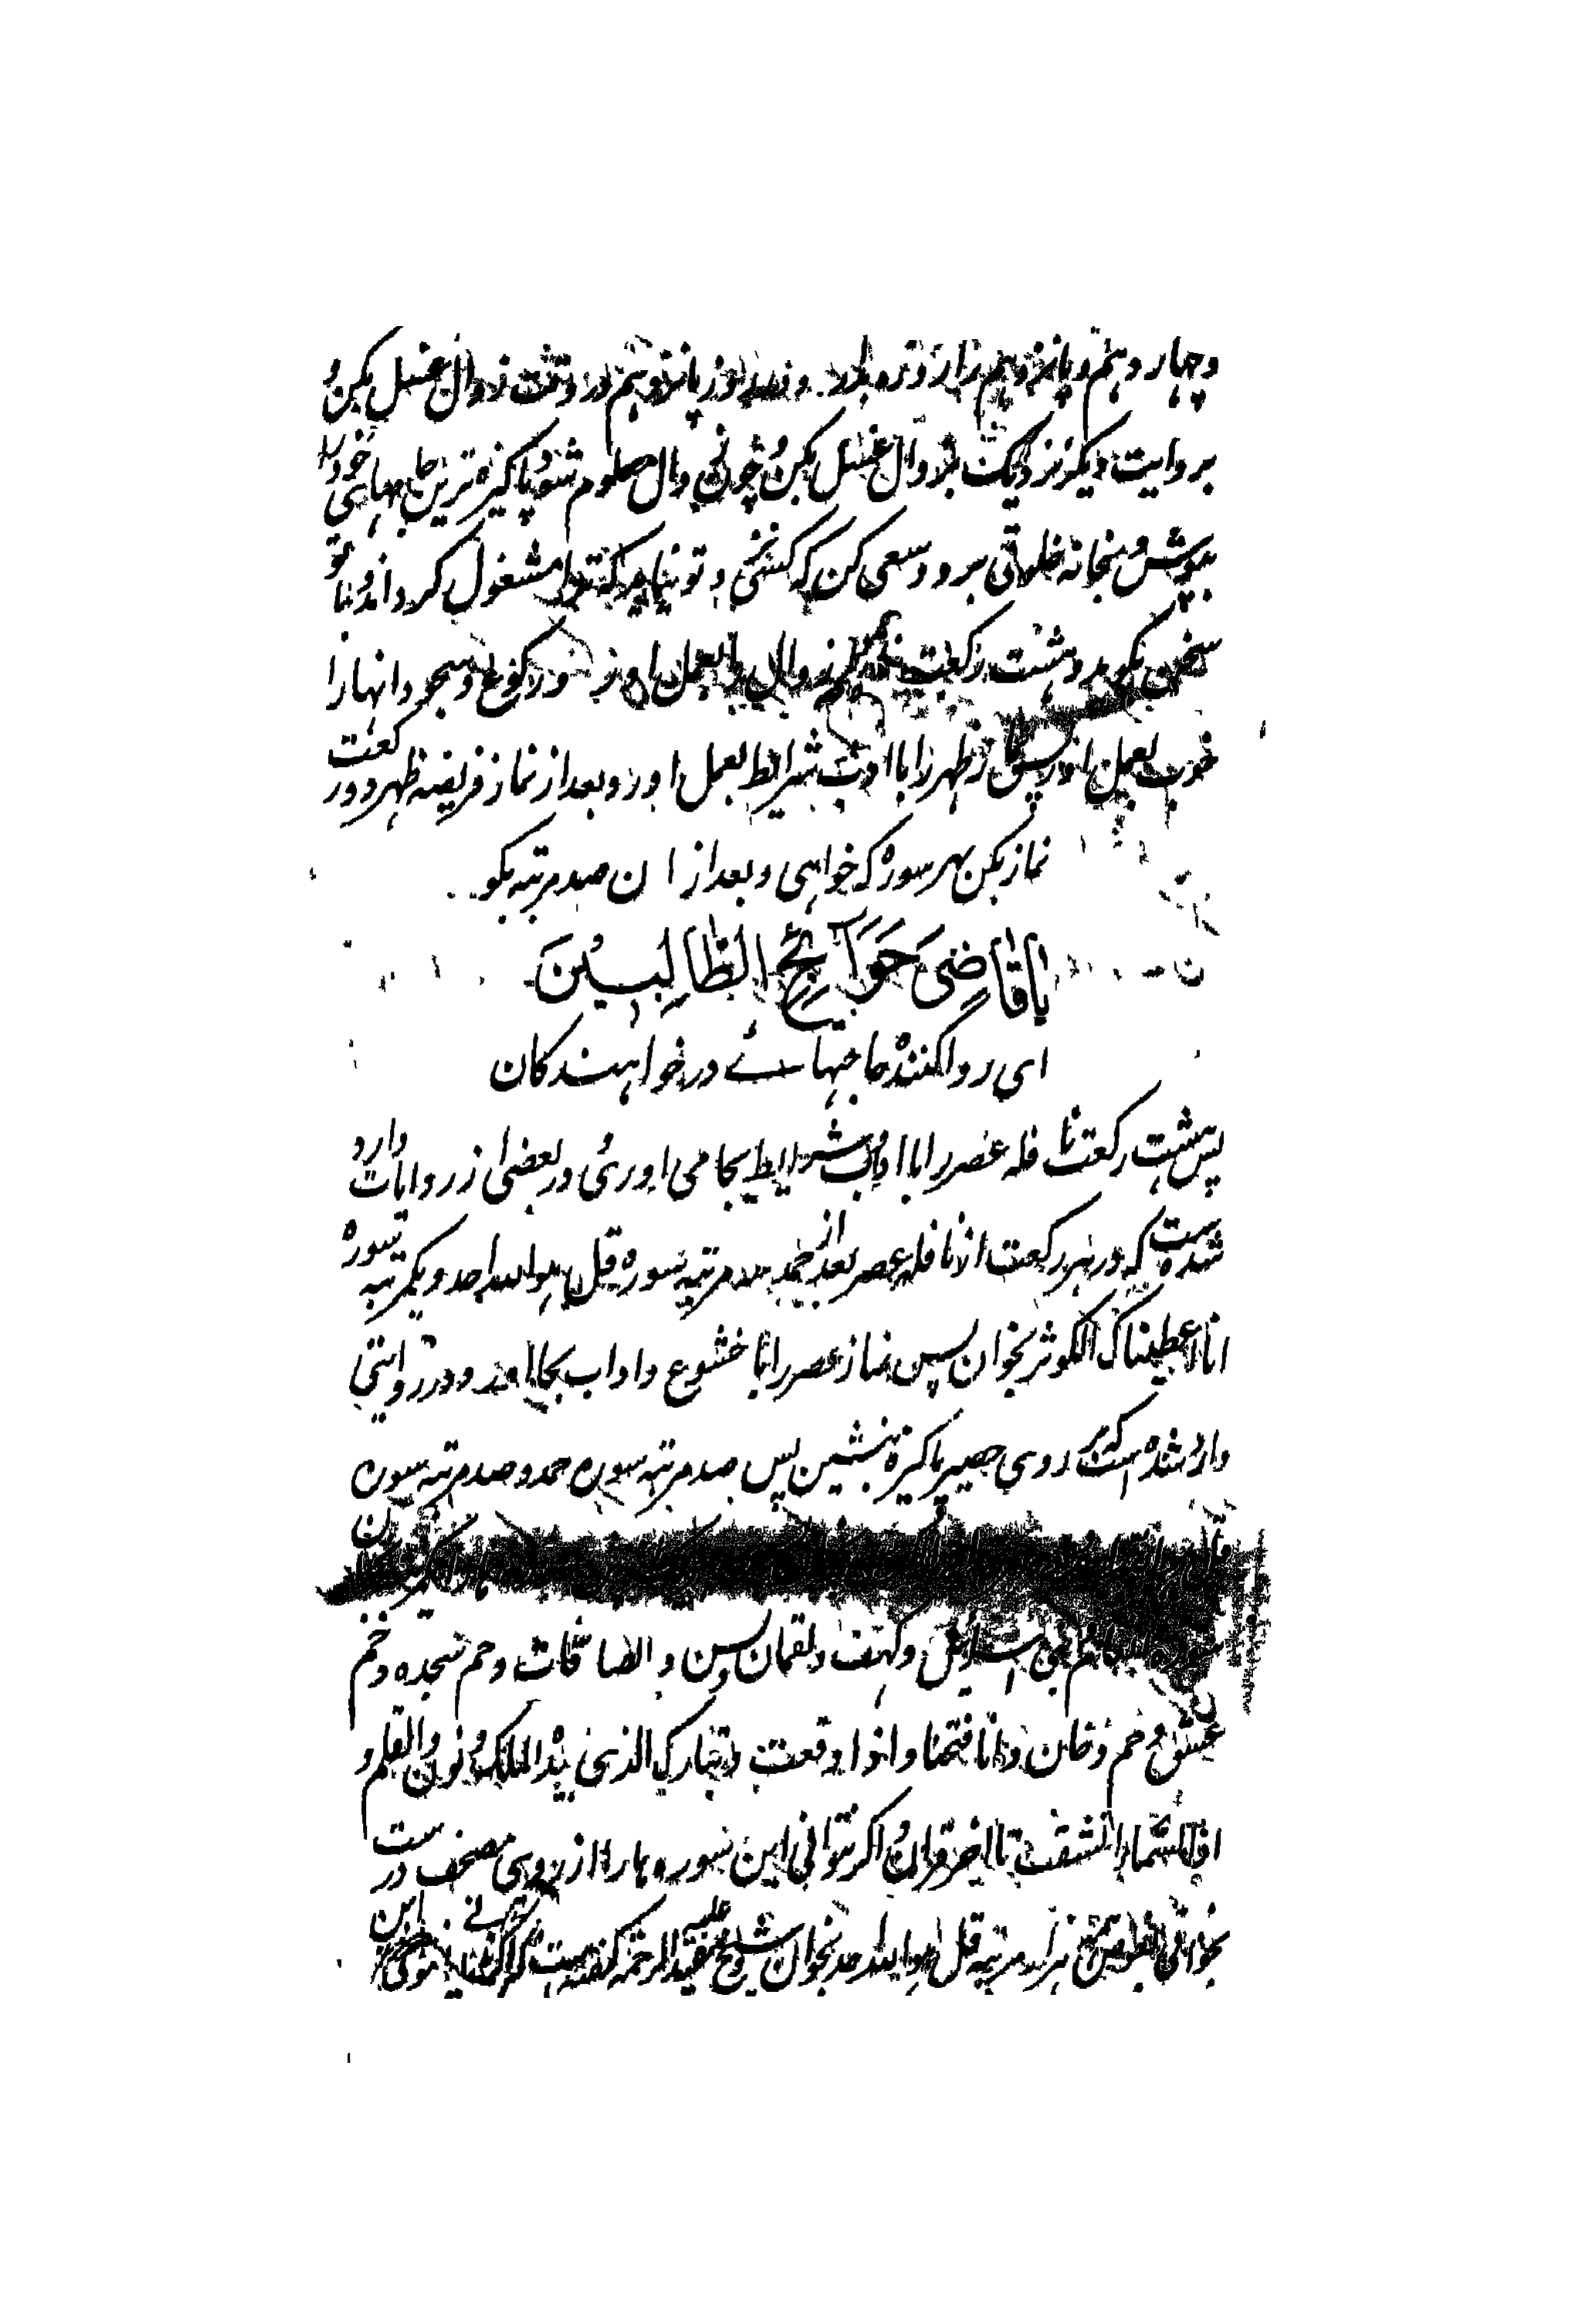 و چهاردهم و پانزدهم را روزه بدار و در روز پانزدهم در وقت زوال غسل بکن و
بروایت دیگر نزدیک بزوال غسل بکن و چون زوال معلوم شود پاکیزه ترین جامهای خود را
بپوش و بخانه خلوتی برو و سعی کن که کسی نزد تو نیاید که ترا مشغول کرداند و با تو
سخن بگوید و هشت رکعت نافله زوال را بعمل اور و رکوع و سجود انها را
خوب بعمل اور پس نماز ظهر را با اداب شرایط بعمل اور و بعد از نماز فریضه ظهر دو رکعت
نماز بکن بهر سوره که خواهی و بعد از ان صد مرتبه بکو
یَا قَاضِیَ حَوَآئِجِ الطَّالِبِیْنَ
ای رواکننده حاجتهائے درخواهندکان
پس هشت رکعت نافله عصر را با اداب شرایط بجا می اوری و در بعضی از روایات وارد
شده است که در هر رکعت از نافله عصر بعد از حمد سه مرتبه سوره قل هو الله احد و یکمرتبه سوره
انا اعطیناک الکوثر بخوان پس نماز عصر را با خشوع و اداب بجا اور و در روایتی
وارد شده است که بر روی حصیر پاکیزه بنشین پس صد مرتبه سوره حمد و صد مرتبه سوره
بنی اسرائیل و کهف و لقمان و یس و الصافات و حم سجده و حم
عسق و حم دخان و انا فتحنا و اذا وقعت و تبارک الذی بیده الملک و نون والقلم و
اذا السماء انشقت تا اخر قران و اکر نتوانی این سوره ها را از روی مصحف درست
بخوانی هزار مرتبه قل هو الله احد بخوان و شیخ مفید علیه الرحمة کفته است که اکر نتوانی این